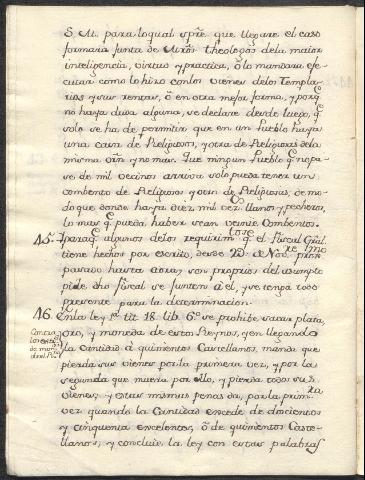 S. M. para loqual spre. que llegare el caso
formara Junta de Mros. theologos dela maior
inteligencia, virtud y practica, ò lo mandara ese-
cutar como lo hizo conlos vienes delos Templa-
rios y sus rentas, ò en otra mejor forma, y porq
no haya duda alguna, se declare desde luego, q
solo se ha de permitir que en un Pueblo haya
una casa de Religiosos, y otra de Religiosas dela
misma orn y no mas. Que ningun Pueblo q no pa-
se de mil vecinos arriva solo pueda tener un
combento de Religiosos y otro de Religiosas, de mo-
do que donde haya diez mil vecos llanos y pecheros,
lo mas q pueda haber sean veinte Combentos.
45. Iparaq algunos delos requirimtos q el Fiscal Gral
tiene hechos por escrito, desde 20 de Nove prox
pasado hasta ahora, son proprios del asumpto
pide dho fiscal se junten à el, y se tenga todo
presente para la determinacion.
46. Enla ley 1a tit 18. lib. 6o se prohibe sacar plata,
Contra
los
oro, y moneda de estos Reynos, y en llegando
la cantidad à quinientos Castellanos, manda que
pierda sus vienes por la primera vez, y por la
segunda que muera por ello, y pierda todos sus
vienes, y estas mismas penas da, por la prim
vez quando la Cantidad excede de docientos
y cinquenta excelentes, ò de quinientos Caste-
llanos, y concluie la ley con estas palabras